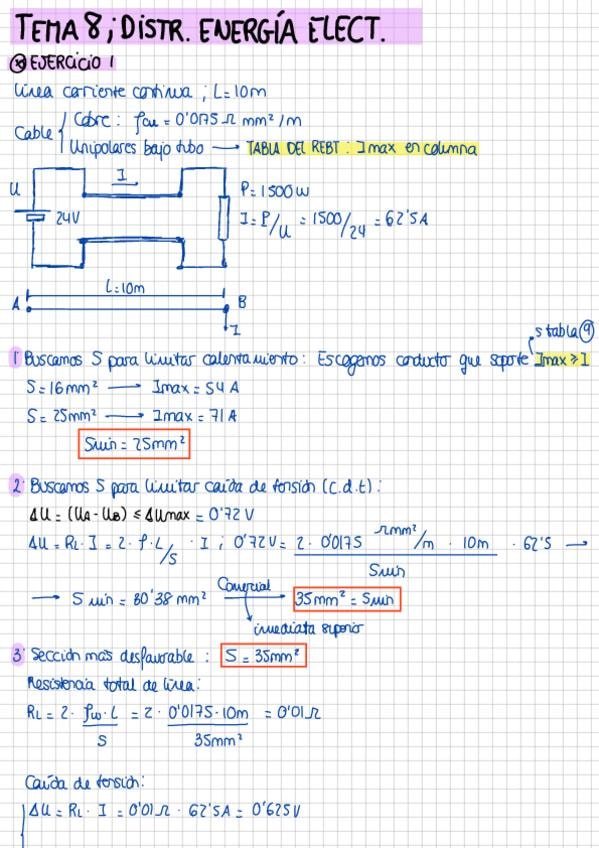 TEMA 8; DISTR. ENERGÍA ELECT.
* EJERCICIO 1
Línea corriente continua ; L=10m
Cable { Cobre: ρcu = 0'0175 Ω mm²/m
Unipolares bajo tubo → TABLA DEL REBT: Imax en columna
I
U
24V
P=1500W
I=P/U = 1500/24 = 62'5A
L=10m
A
B
I
s tabla 9
1 Buscamos S para limitar calentamiento: Escogemos conductor que soporte Imax ≥ I
S=16mm² → Imax = 54 A
S=25mm² → Imax = 71 A
Smin = 25mm²
2 Buscamos S para limitar caída de tensión (c.d.t):
ΔU = (UA - UB) ≤ ΔUmax = 0'72 V
ΔU = RL · I = 2 · ρ·L/S · I ; 0'72V = 2 · 0'0175 Ωmm²/m · 10m / Smin · 62'5 →
→ Smin = 30'38 mm² Comercial → 35mm² = Smin
inmediata superior
3 Sección más desfavorable : S = 35mm²
Resistencia total de línea:
RL = 2 · ρcu · L / S = 2 · 0'0175 · 10m / 35mm² = 0'01Ω
Caída de tensión:
ΔU = RL · I = 0'01Ω · 62'5A = 0'625V